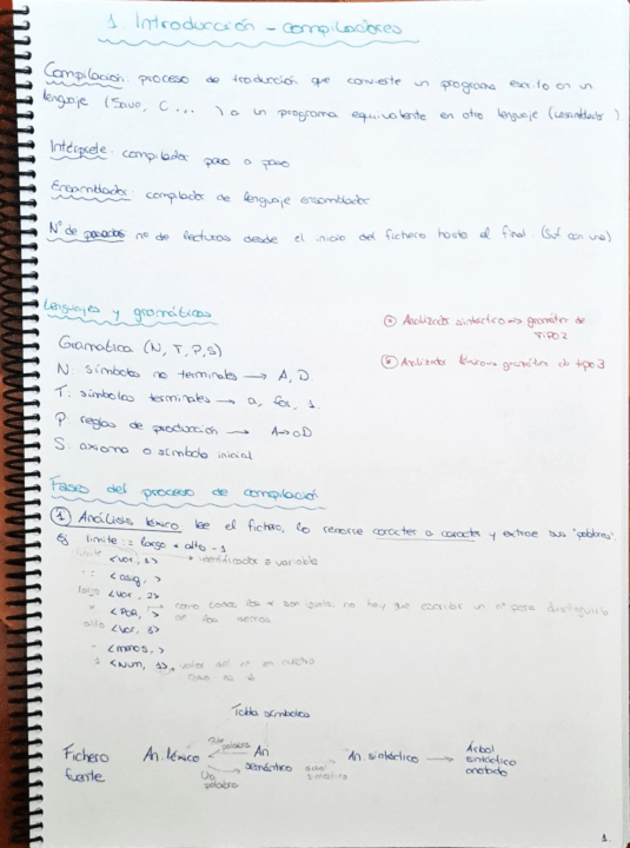 1. Introducción - compiladores
Compilación: proceso de traducción que convierte un programa escrito en un
lenguaje (Java, C ... ) a un programa equivalente en otro lenguaje (ensamblador)
Intérprete: compilador paso a paso
Ensamblador: compilador de lenguaje ensamblador
Nº de pasadas no de lecturas desde el inicio del fichero hasta el final. (Suf con una)
Lenguajes y gramáticas
ⓐ Analizador sintáctico → gramáticas de
TIPO 2
Gramatica (N, T, P, S)
ⓑ Analizador léxico → gramática de tipo 3
N: símbolos no terminales → A, D.
T: símbolos terminales → a, for, 1.
P: reglas de producción → A→aD
S: axioma o símbolo inicial
Fases del proceso de compilación
① Análisis léxico lee el fichero, lo recorre caracter a caracter y extrae sus "palabras".
Ej limite := largo * alto - 1
limite <var, 1> → identificador = variable
:= <asig, >
largo <var, 2>
* <POR, > → como todos los * son iguales, no hay que escribir un nº para distinguirlo
de los demás
alto <var, 3>
- <menos, >
1 <Num, 1>, valor del nº en nuestro
caso es 1
Tabla símbolos
Fichero fuente
An. léxico
Pide palabra
Da palabra
An semántico
árbol sintáctico
An. sintáctico →
Árbol sintáctico anotado
1.